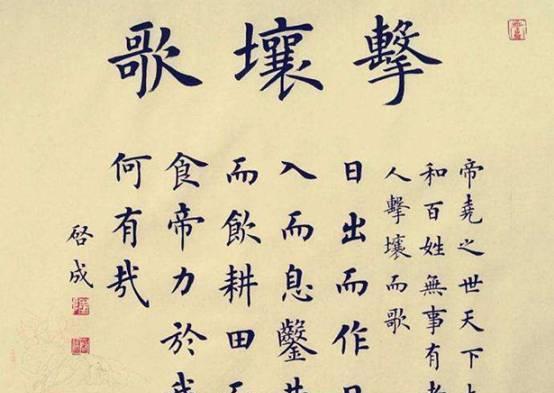 擊壤歌
帝堯之世天下
和百姓無事有老
人擊壤而歌
日出而作日
入而息鑿井
而飲耕田而
食帝力於我
何有哉
啓成